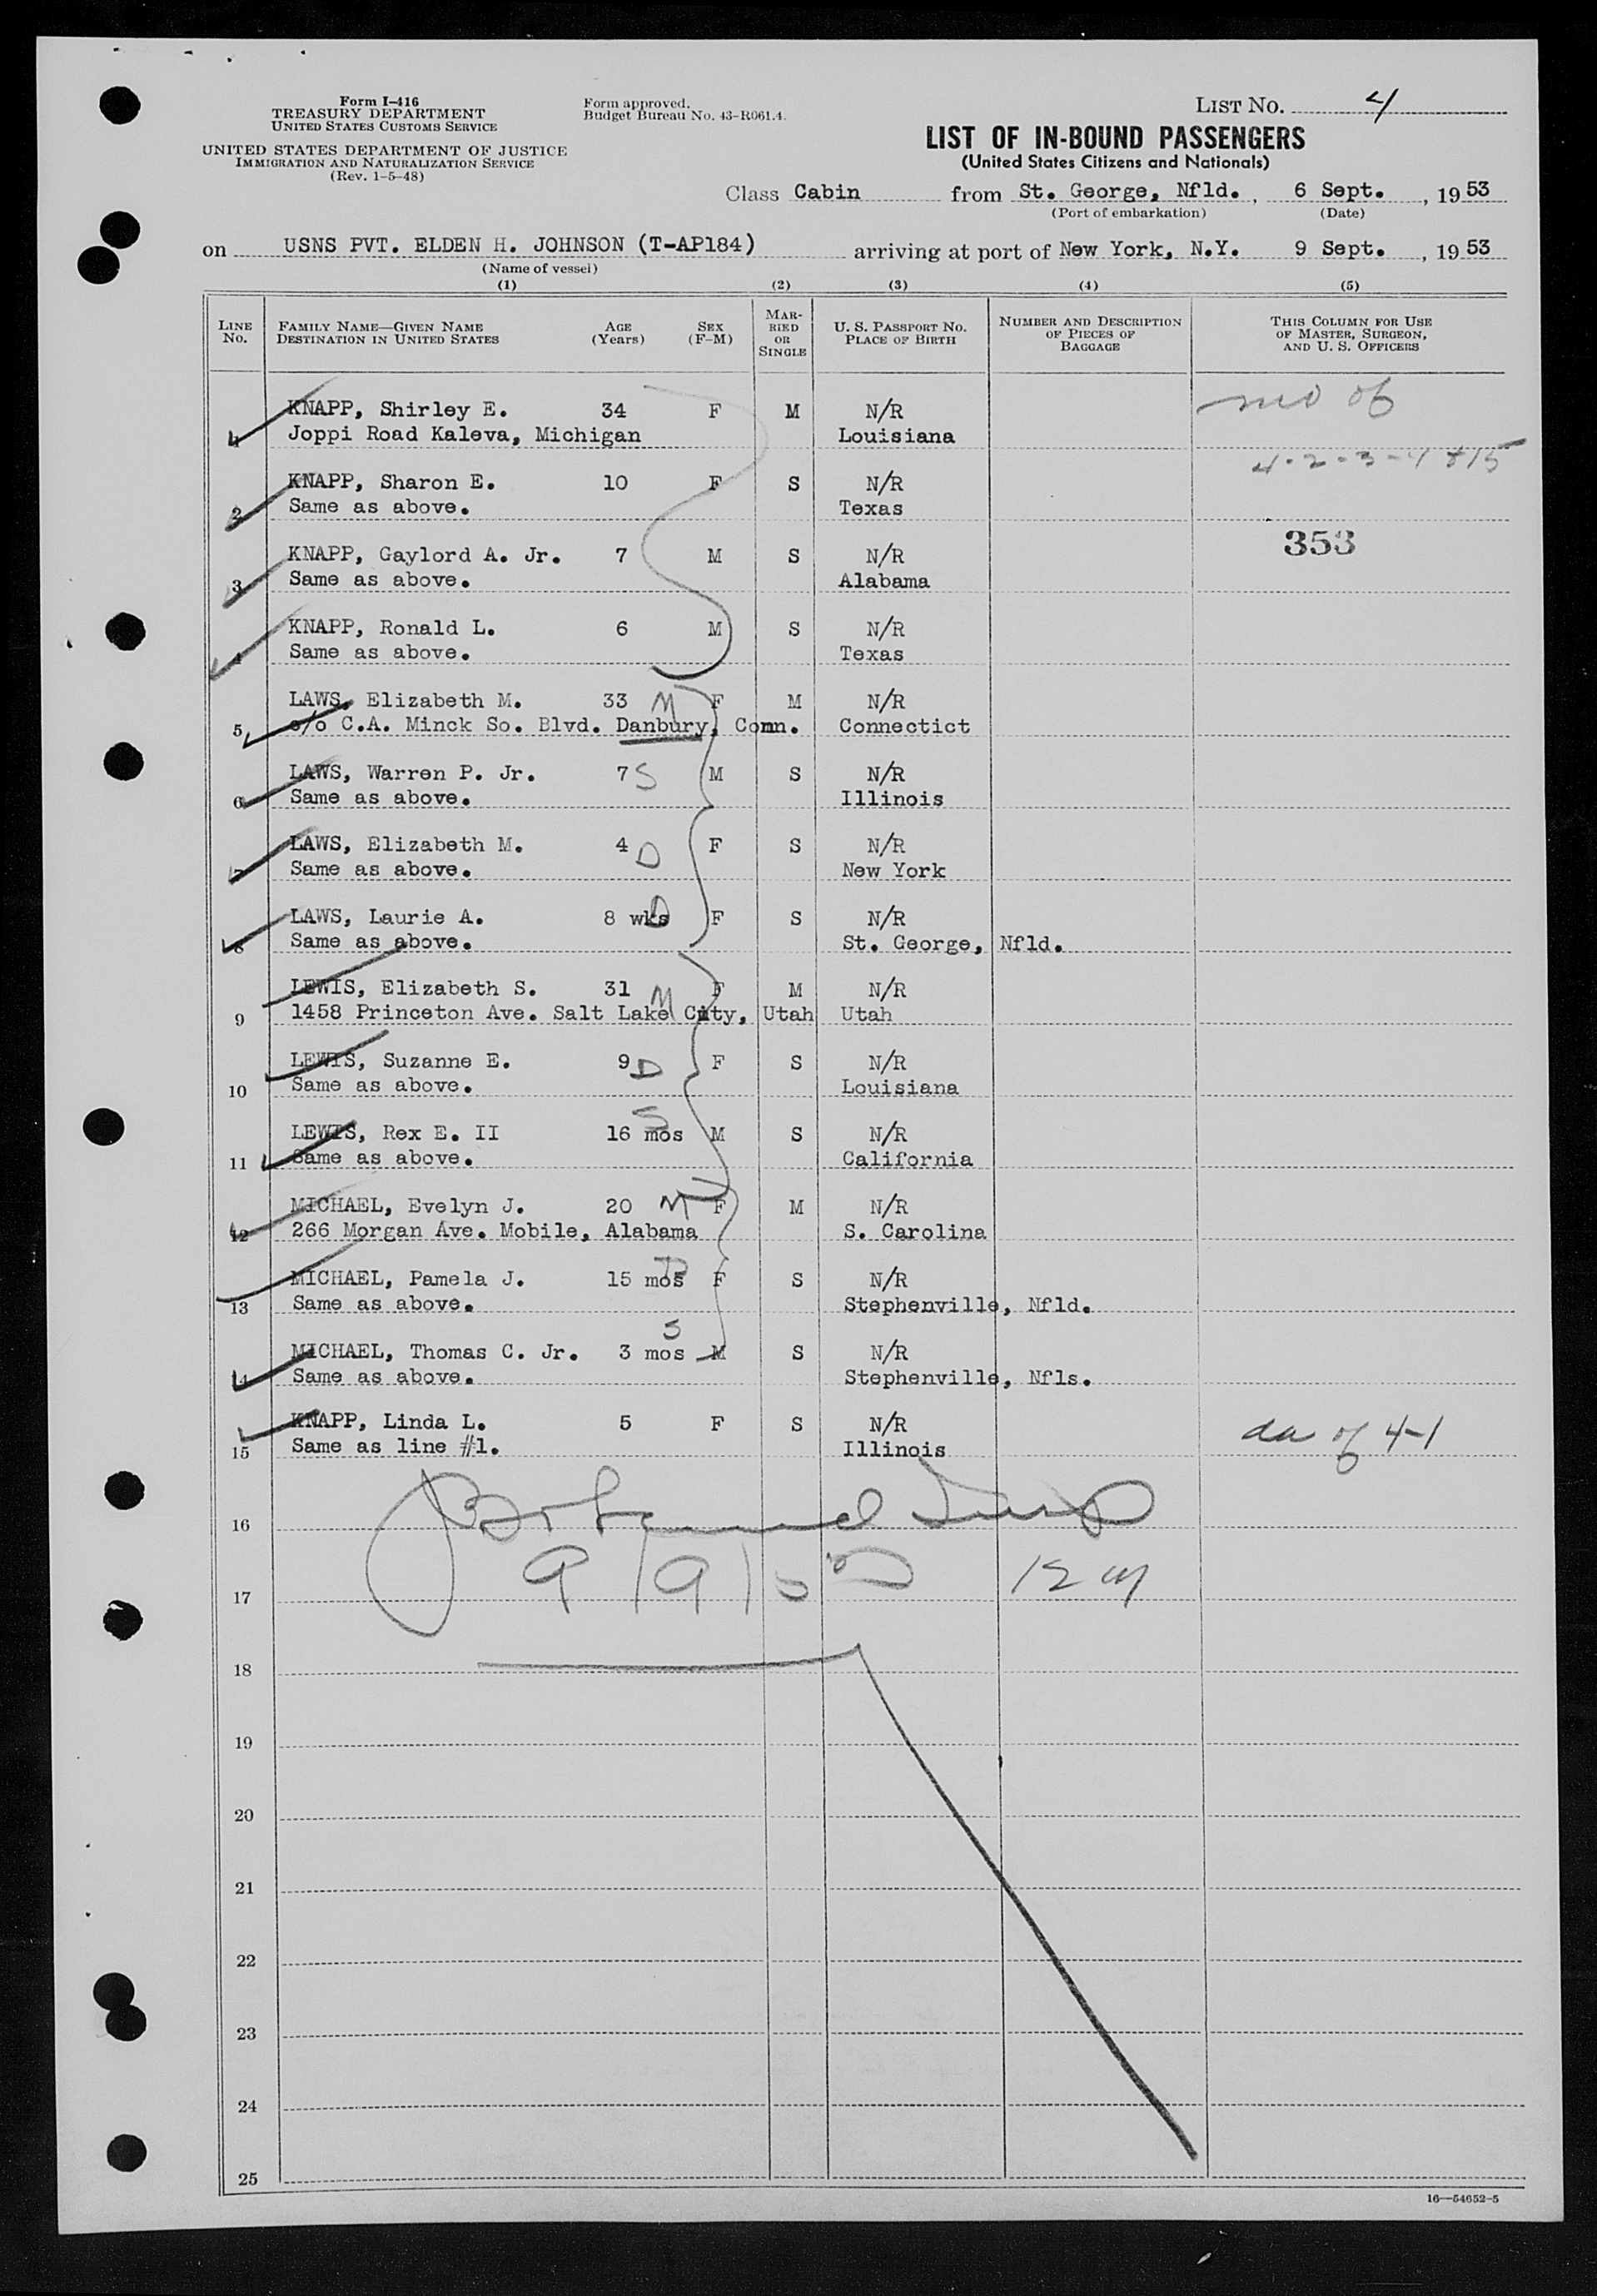 Form I-416
TREASURY DEPARTMENT
UNITED STATES CUSTOMS SERVICE
UNITED STATES DEPARTMENT OF JUSTICE
IMMIGRATION AND NATURALIZATION SERVICE
(Rev. 1-5-48)
Form approved.
Budget Bureau No. 43-R061.4.
LIST NO. 4
LIST OF IN-BOUND PASSENGERS
(United States Citizens and Nationals)
Class Cabin from St. George, Nfld. , 6 Sept. , 1953
(Port of embarkation) (Date)
on USNS PVT. ELDEN H. JOHNSON (T-AP184) arriving at port of New York, N.Y. 9 Sept. , 1953
(Name of vessel)
(1) (2) (3) (4) (5)
LINE No. FAMILY NAME—GIVEN NAME DESTINATION IN UNITED STATES AGE (Years) SEX (F-M) MARRIED OR SINGLE U. S. PASSPORT NO. PLACE OF BIRTH NUMBER AND DESCRIPTION OF PIECES OF BAGGAGE THIS COLUMN FOR USE OF MASTER, SURGEON, AND U. S. OFFICERS
KNAPP, Shirley E. 34 F M N/R mo of
1 Joppi Road Kaleva, Michigan Louisiana
4-2-3-4 +15
KNAPP, Sharon E. 10 F S N/R
2 Same as above. Texas
353
KNAPP, Gaylord A. Jr. 7 M S N/R
3 Same as above. Alabama
KNAPP, Ronald L. 6 M S N/R
4 Same as above. Texas
LAWS, Elizabeth M. 33 M F M N/R
5 c/o C.A. Minck So. Blvd. Danbury, Conn. Connectict
LAWS, Warren P. Jr. 7 S M S N/R
6 Same as above. Illinois
LAWS, Elizabeth M. 4 D F S N/R
7 Same as above. New York
LAWS, Laurie A. 8 wks D F S N/R
8 Same as above. St. George, Nfld.
LEWIS, Elizabeth S. 31 M F M N/R
9 1458 Princeton Ave. Salt Lake City, Utah Utah
LEWIS, Suzanne E. 9 D F S N/R
10 Same as above. Louisiana
LEWIS, Rex E. II 16 mos S M S N/R
11 Same as above. California
MICHAEL, Evelyn J. 20 M F M N/R
12 266 Morgan Ave. Mobile, Alabama S. Carolina
MICHAEL, Pamela J. 15 mos D F S N/R
13 Same as above. Stephenville, Nfld.
MICHAEL, Thomas C. Jr. 3 mos S M S N/R
14 Same as above. Stephenville, Nfls.
KNAPP, Linda L. 5 F S N/R da of 4-1
15 Same as line #1. Illinois
16
17
18
19
20
21
22
23
24
25
16—54652-5